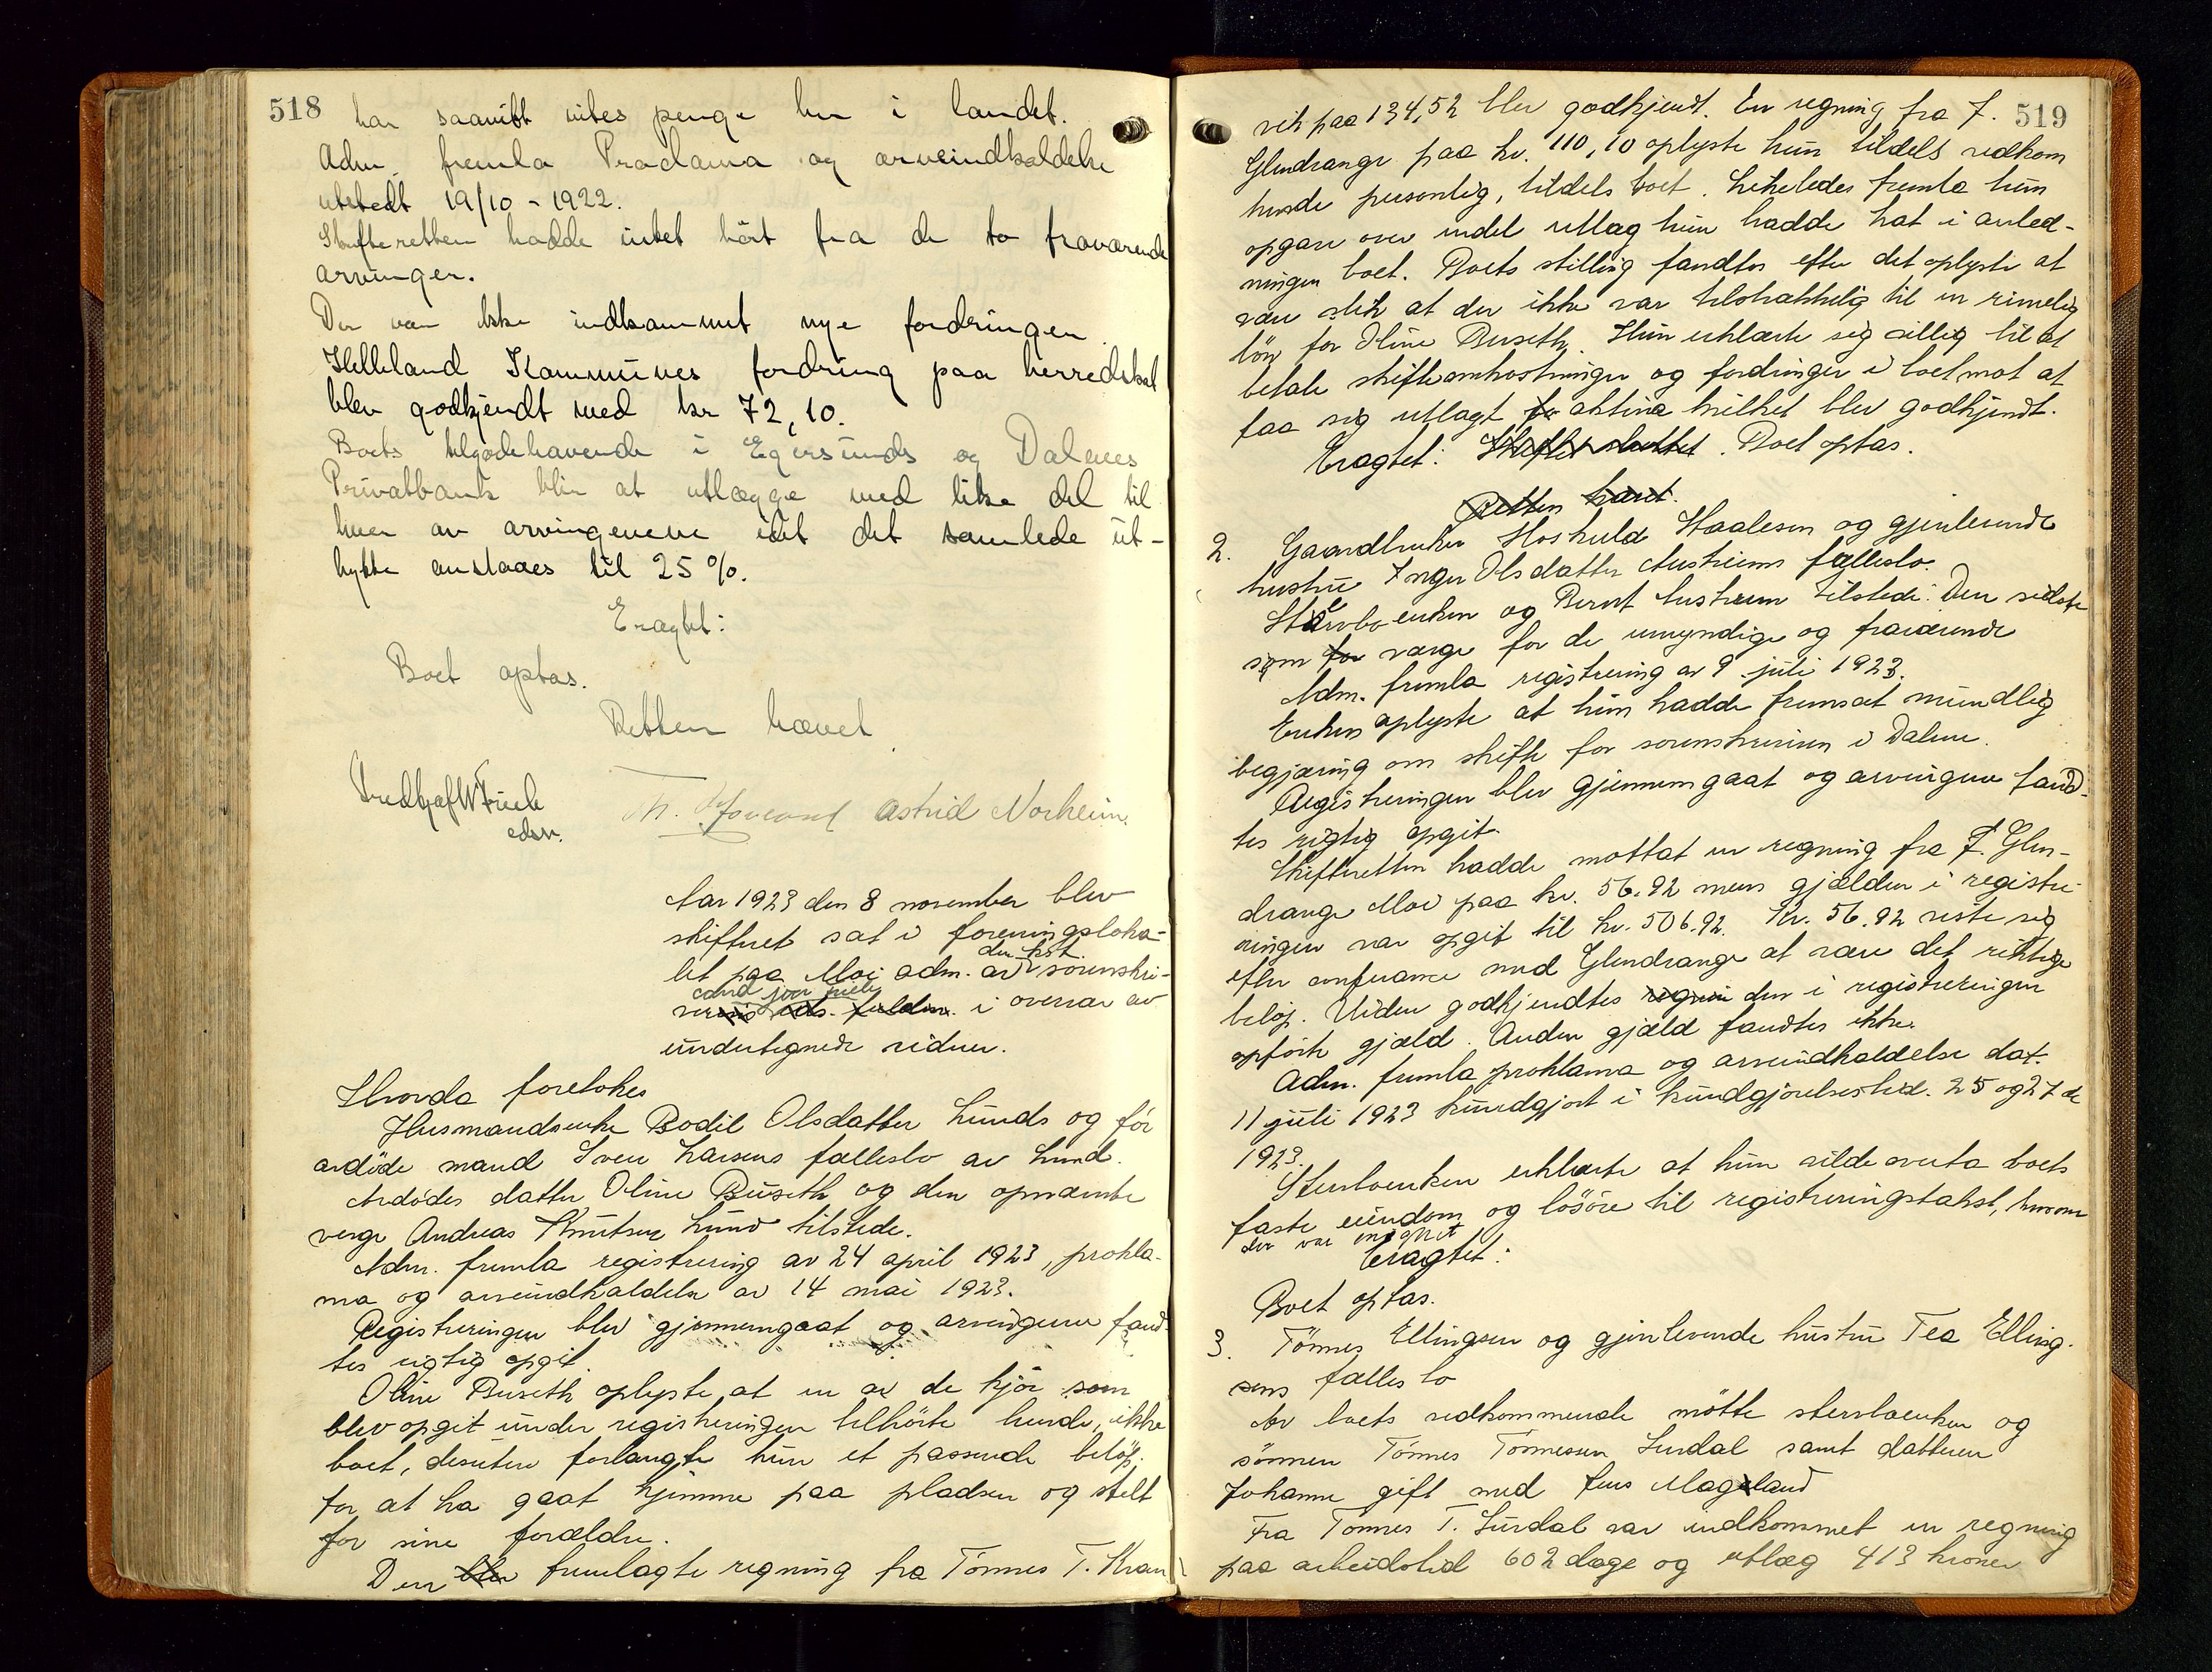 518
har saavidt vites penge her i landet.
Adm. fremla Proclama og arveindkaldelse
utstedt 19/10 - 1922.
Skifteretten hadde intet hört fra de to fraværende
arvinger.
Der var ikke indkommet nye fordringer.
Helleland Kommunes fordring paa herredskat
blev godkjendt med kr 72,10.
Boets tilgodehavende i Egersunds og Dalenes
Privatbank blir at utlægge med like del til
hver av arvingerne idet det samlede ut-
bytte anslaaes til 25 %.
Eragtet:
Boet optas.
Retten hævet
Astrid Norheim.
Aar 1923 den 8 november blev
skifteret sat i foreningsloka-
let paa Moi adm. av den kst. sorenskri-
ver cand jur i overvær av
undertegnede vidner.
Hvorda foretokes
Husmandsenke Bodil Olsdatter Hunds og før
avdöde mand Sven Larsens fællesbo av Hund.
Avdödes datter Oline Buseth og den opnævnte
verge Andreas Knutsen Hund tilstede.
Adm. fremla registrering av 24 april 1923, prokla-
ma og arveindkaldelse av 14 mai 1923.
Registreringen blev gjennemgaat og arvingerne fand-
tes rigtig opgit.
Oline Buseth oplyste at en av de kjör som
blev opgit under registreringen tilhörte hende, ikke
boet, desuten forlangte hun et passende belöp
for at ha gaat hjemme paa pladsen og stelt
for sine forældre.
Den blev fremlagte regning fra Tönnes T. Kran
519
vik paa 134,52 blev godkjendt. En regning fra J.
Glendrange paa kr. 110,10 oplyste hun tildels vedkom
hende personlig, tildels boet. Likeledes fremla hun
opgave over endel utlæg hun hadde hat i anled-
ningen boet. Boets stilling fandtes efter det oplyste at
være slik at der ikke var tilstrækkelig til en rimelig
lön for Oline Buseth. Hun erklærte sig villig til at
betale skifteomkostninger og fordringer i boet mot at
faa sig utlagt aktiva hvilket blev godkjendt.
Eragtet: Skiftet sluttet. Boet optas.
Retten hævet.
2. Gaardbruker Hoskuld Haalesen og gjenlevende
hustru Inger Olsdatter Austreims fællesbo.
Stervboenken og Bernt Austreim tilstede. Den sidste
som for værge for de umyndige og fraværende
Adm. fremla registrering av 9 juli 1923.
Enken oplyste at hun hadde fremsat mundlig
begjæring om skifte for sorenskriveren i Dalene.
Registreringen blev gjennemgaat og arvingene fand-
tes rigtig opgit.
Skifteretten hadde mottat en regning fra J. Glen-
drange Moi paa kr. 56.92 mens gjælden i registre-
ringen var opgit til kr. 506.92. Kr. 56.92 viste sig
efter conferance med Glendrange at være det riktige
belöp. Uiden godkjendtes den i registreringen
opförte gjæld. Anden gjæld fandtes ikke.
Adm. fremla proklama og arveindkaldelse dat.
11 juli 1923 kundgjort i kundgjörelsestid. 25 og 27 de
1923.
Stervboenken erklærte at hun vilde overta boets
faste eiendom og lösöre til registreringstakst, hvorom
der var enighet
Eragtet:
Boet optas.
3. Tönnes Ellingsen og gjenlevende hustru Tea Elling-
sens fællesbo
Av boets vedkommende mötte stervboenken og
sönnen Tönnes Tönnesen Surdal samt datteren
Johanne gift med Jens Mageland
Fra Tönnes T. Surdal var indkommet en regning
paa arbeidstid 602 dage og utlæg 413 kroner